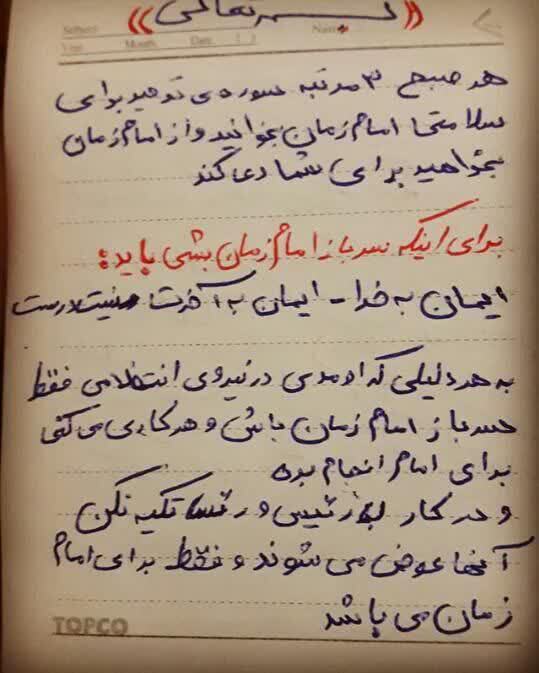 «بسمه تعالی»
Subject:
Year. Month. Date. ( )
هر صبح ۳ مرتبه سوره‌ی توحید برای
سلامتی امام زمان بخوانید و از امام زمان
بخواهید برای شما دعا کند
برای اینکه سرباز امام زمان بشی باید:
ایمان به خدا - ایمان به آخرت نیت درست
به هر دلیلی که اومدی در نیروی انتظامی فقط
سرباز امام زمان باش و هر کاری می کنی
برای امام انجام بده
و در کار به رئیس و رؤسا تکیه نکن
آنها عوض می شوند و فقط برای امام
زمان می باشد
TOPCO